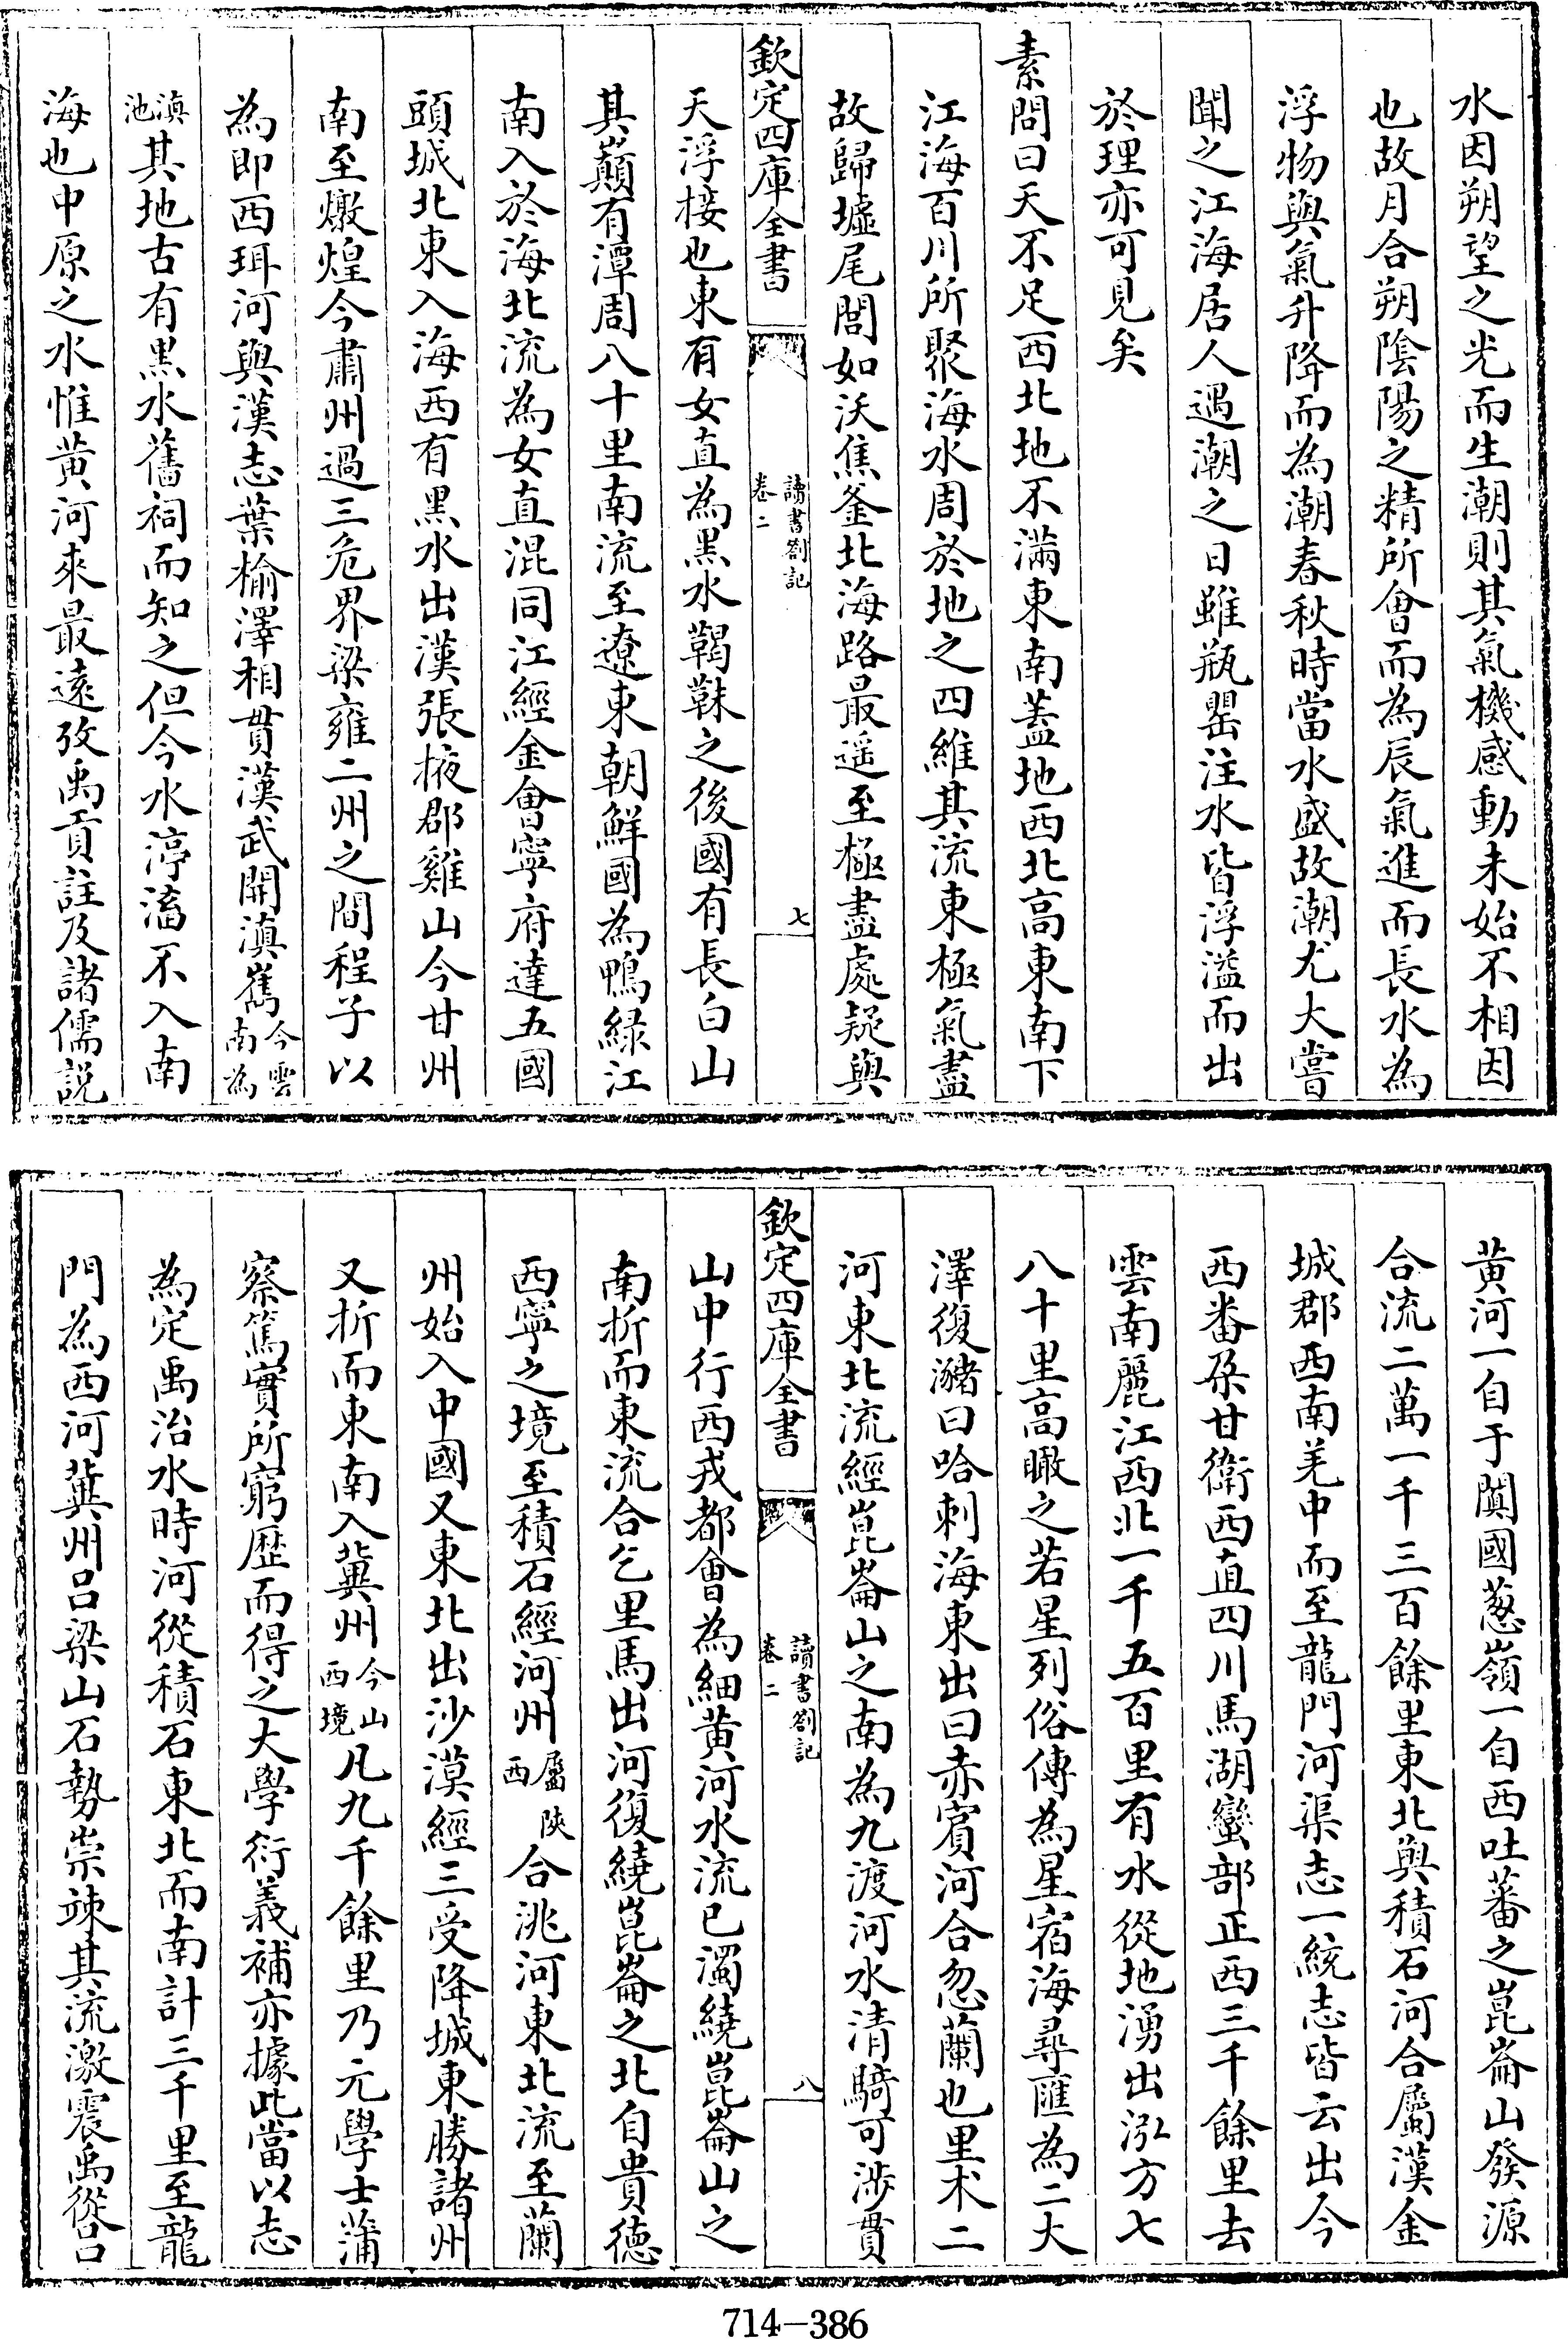 水因朔望之光而生潮則其氣機感動未始不相因
也故月合朔陰陽之精所會而為辰氣進而長水為
浮物與氣升降而為潮春秋時當水盛故潮尤大嘗
聞之江海居人遇潮之日雖瓶罌注水皆浮溢而出
於理亦可見矣
素問曰天不足西北地不滿東南蓋地西北高東南下
江海百川所聚海水周於地之四維其流東極氣盡
故歸墟尾閭如沃焦釜北海路最遥至極盡處疑與
欽定四庫全書
讀書劄記
卷二
七
天浮接也東有女直為黑水靺鞨之後國有長白山
其巔有潭周八十里南流至遼東朝鮮國為鴨緑江
南入於海北流為女直混同江經金會寧府達五國
頭城北東入海西有黑水出漢張掖郡雞山今甘州
南至燉煌今肅州過三危界梁雍二州之間程子以
為即西珥河與漢志葉榆澤相貫漢武開滇嶲今雲南為
滇池其地古有黑水舊祠而知之但今水渟滀不入南
海也中原之水惟黄河來最遠攷禹貢註及諸儒説
黄河一自于闐國葱嶺一自西吐蕃之崑崙山發源
合流二萬一千三百餘里東北與積石河合屬漢金
城郡西南羌中而至龍門河渠志一統志皆云出今
西番朶甘衛西直四川馬湖蠻部正西三千餘里去
雲南麗江西北一千五百里有水從地湧出泓方七
八十里高瞰之若星列俗傳為星宿海尋匯為二大
澤復瀦曰哈剌海東出曰赤賓河合忽蘭也里术二
河東北流經崑崙山之南為九渡河水清騎可涉貫
欽定四庫全書
讀書劄記
卷二
八
山中行西戎都會為細黄河水流已濁繞崑崙山之
南折而東流合乞里馬出河復繞崑崙之北自貴德
西寧之境至積石經河州屬陜西合洮河東北流至蘭
州始入中國又東北出沙漠經三受降城東勝諸州
又折而東南入冀州今山西境凡九千餘里乃元學士蒲
察篤實所窮歴而得之大學衍義補亦據此當以志
為定禹治水時河從積石東北而南計三千里至龍
門為西河冀州呂梁山石勢崇竦其流激震禹從呂
714－386